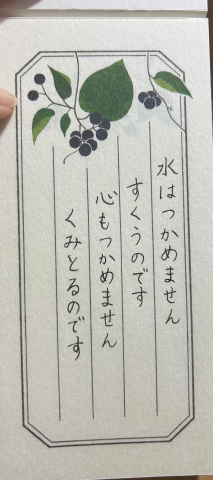 水はつかめません
すくうのです
心もつかめません
くみとるのです